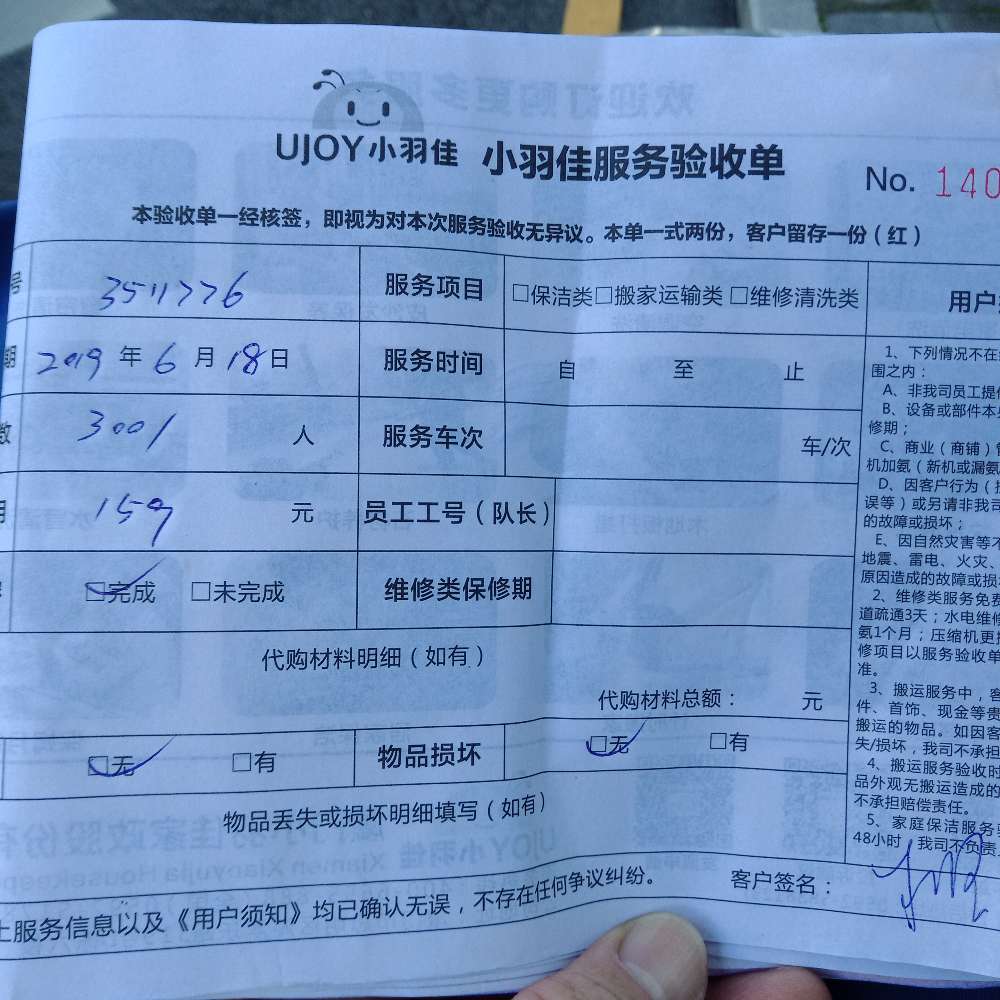 UJOY小羽佳 小羽佳服务验收单 No. 140
本验收单一经核签，即视为对本次服务验收无异议。本单一式两份，客户留存一份（红）
号 3511776 服务项目 □保洁类□搬家运输类 □维修清洗类
期 2019 年 6 月 18 日 服务时间 自 至 止
数 3001 人 服务车次 车/次
159 元 员工工号（队长）
□完成 □未完成 维修类保修期
代购材料明细（如有）
代购材料总额： 元
□无 □有 物品损坏 □无 □有
物品丢失或损坏明细填写（如有）
上服务信息以及《用户须知》均已确认无误，不存在任何争议纠纷。 客户签名：
用户
1、下列情况不在
围之内：
A、非我司员工提
B、设备或部件本
修期；
C、商业（商铺）
机加氨（新机或漏氨
D、因客户行为（
误等）或另请非我司
的故障或损坏；
E、因自然灾害等不
地震、雷电、火灾、
原因造成的故障或损
2、维修类服务免费
道疏通3天；水电维修
氨1个月；压缩机更
修项目以服务验收单
准。
3、搬运服务中，客
件、首饰、现金等贵
搬运的物品。如因客
失/损坏，我司不承担
4、搬运服务验收时
品外观无搬运造成的
不承担赔偿责任。
5、家庭保洁服务
48小时，我司不负责